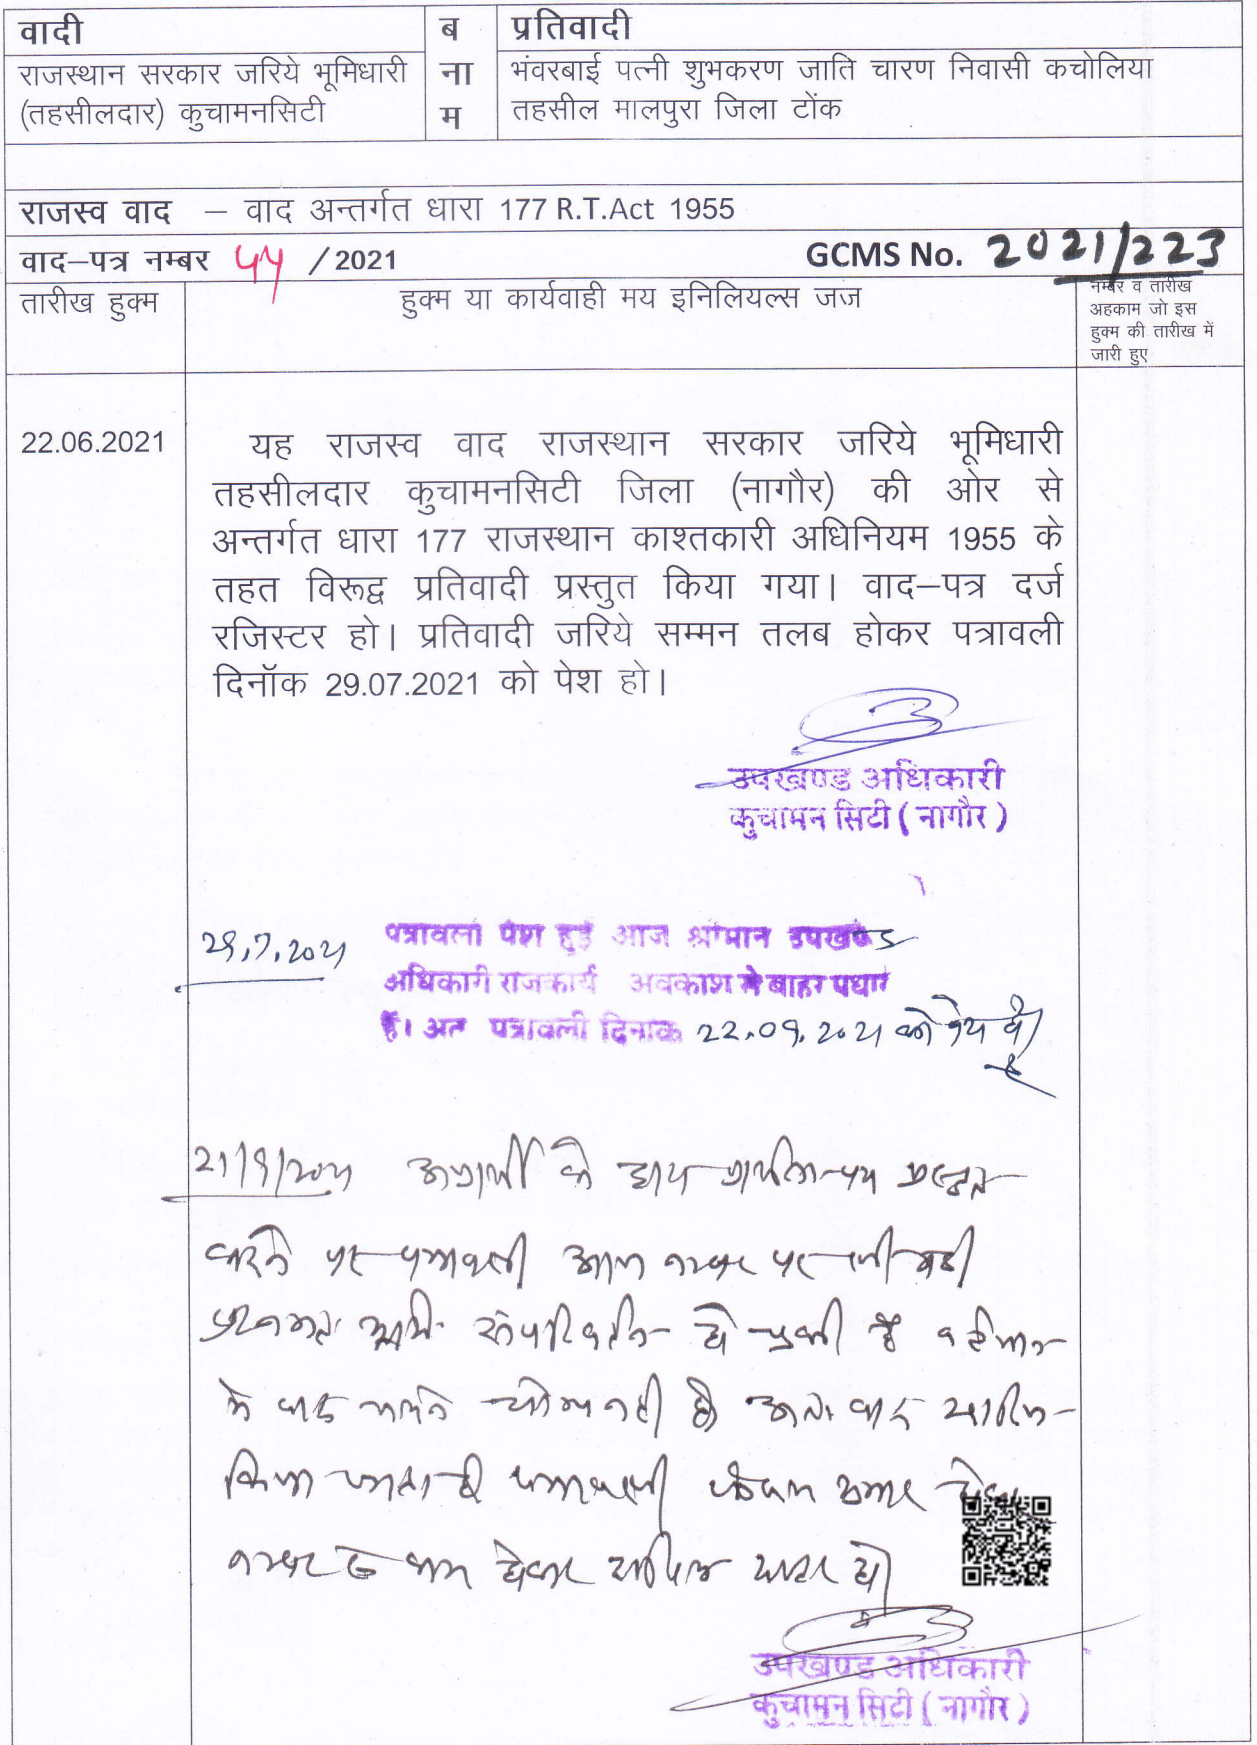 वादी
ब
ना
म
प्रतिवादी
राजस्थान सरकार जरिये भूमिधारी
(तहसीलदार) कुचामनसिटी
भंवरबाई पत्नी शुभकरण जाति चारण निवासी कचोलिया
तहसील मालपुरा जिला टोंक
राजस्व वाद – वाद अन्तर्गत धारा 177 R.T.Act 1955
वाद–पत्र नम्बर ५५ /2021 GCMS No. 2021/223
तारीख हुक्म
हुक्म या कार्यवाही मय इनिलियल्स जज
नम्बर व तारीख
अहकाम जो इस
हुक्म की तारीख में
जारी हुए
22.06.2021
यह राजस्व वाद राजस्थान सरकार जरिये भूमिधारी
तहसीलदार कुचामनसिटी जिला (नागौर) की ओर से
अन्तर्गत धारा 177 राजस्थान काश्तकारी अधिनियम 1955 के
तहत विरूद्व प्रतिवादी प्रस्तुत किया गया। वाद–पत्र दर्ज
रजिस्टर हो। प्रतिवादी जरिये सम्मन तलब होकर पत्रावली
दिनॉक 29.07.2021 को पेश हो।
उपखण्ड अधिकारी
कुचामन सिटी ( नागौर )
29.7.2021 पत्रावली पेश हुई आज श्रीमान उपखण्ड
अधिकारी राजकार्य अवकाश से बाहर पधारे
हैं। अतः पत्रावली दिनांक 22.09.2021 को पेश हो
21/9/2021 के द्वारा प्रार्थना पत्र प्रस्तुत
करने पर पत्रावली आज नम्बर पर ली गयी
भूमि संपरिवर्तन हो चुकी है
वाद चलने योग्य नही है अतः वाद खारिज
किया जाता है पत्रावली फैसल शुमार होकर
नम्बर से कम होकर दाखिल दफ्तर हो
उपखण्ड अधिकारी
कुचामन सिटी ( नागौर )